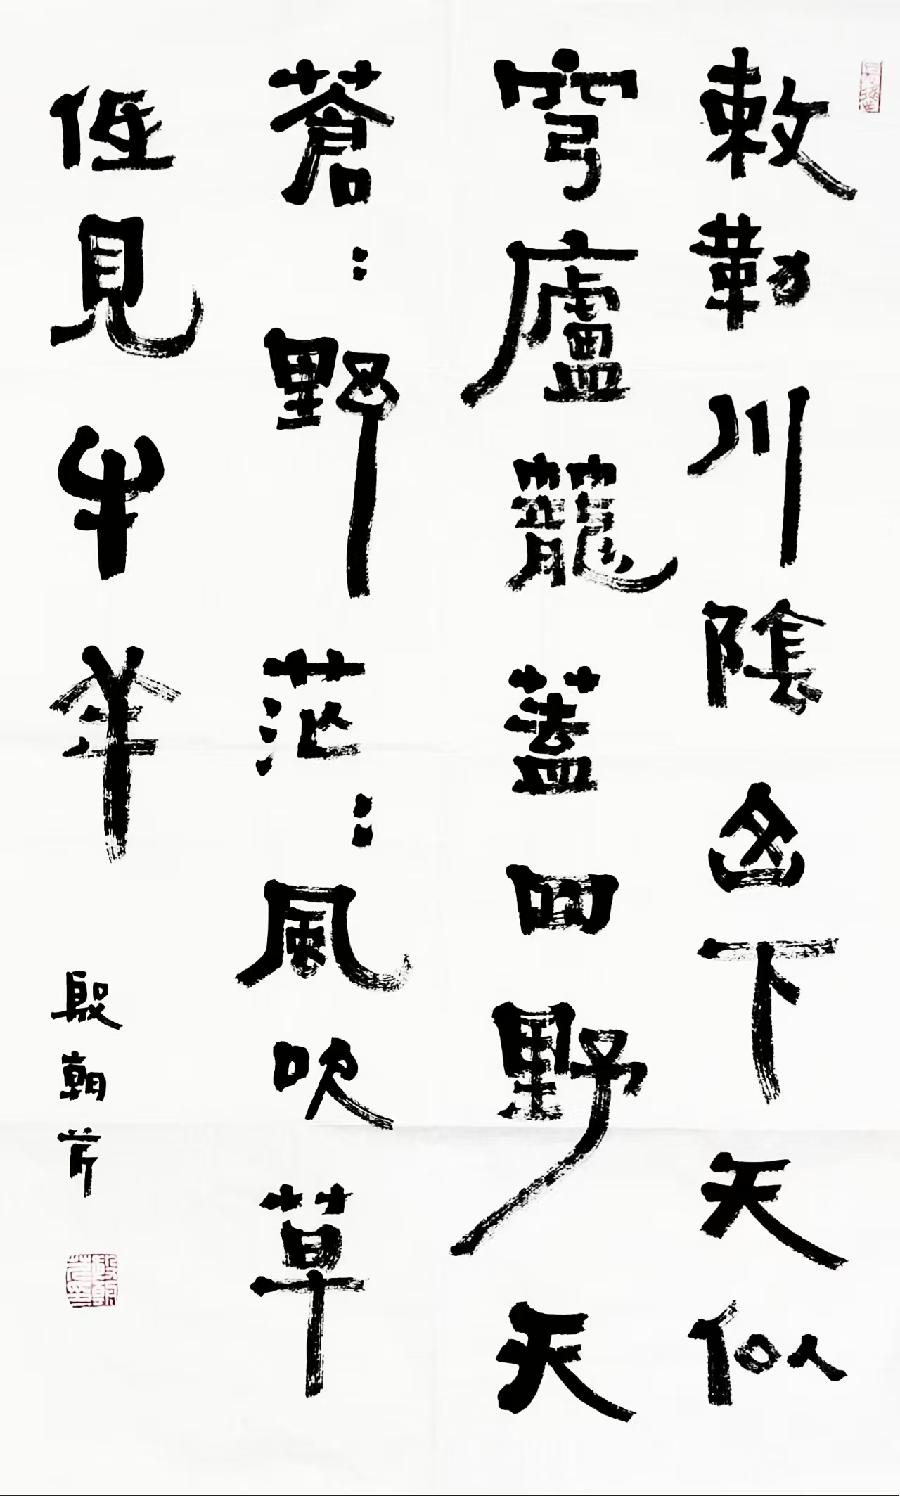 敕勒川陰山下天似
穹廬籠蓋四野天
蒼:野茫:風吹草
低見牛羊
殷朝芹